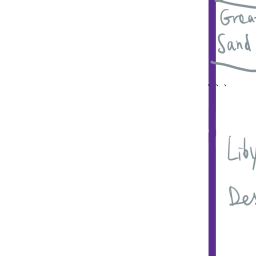 Grea
Sand
Liby
Des